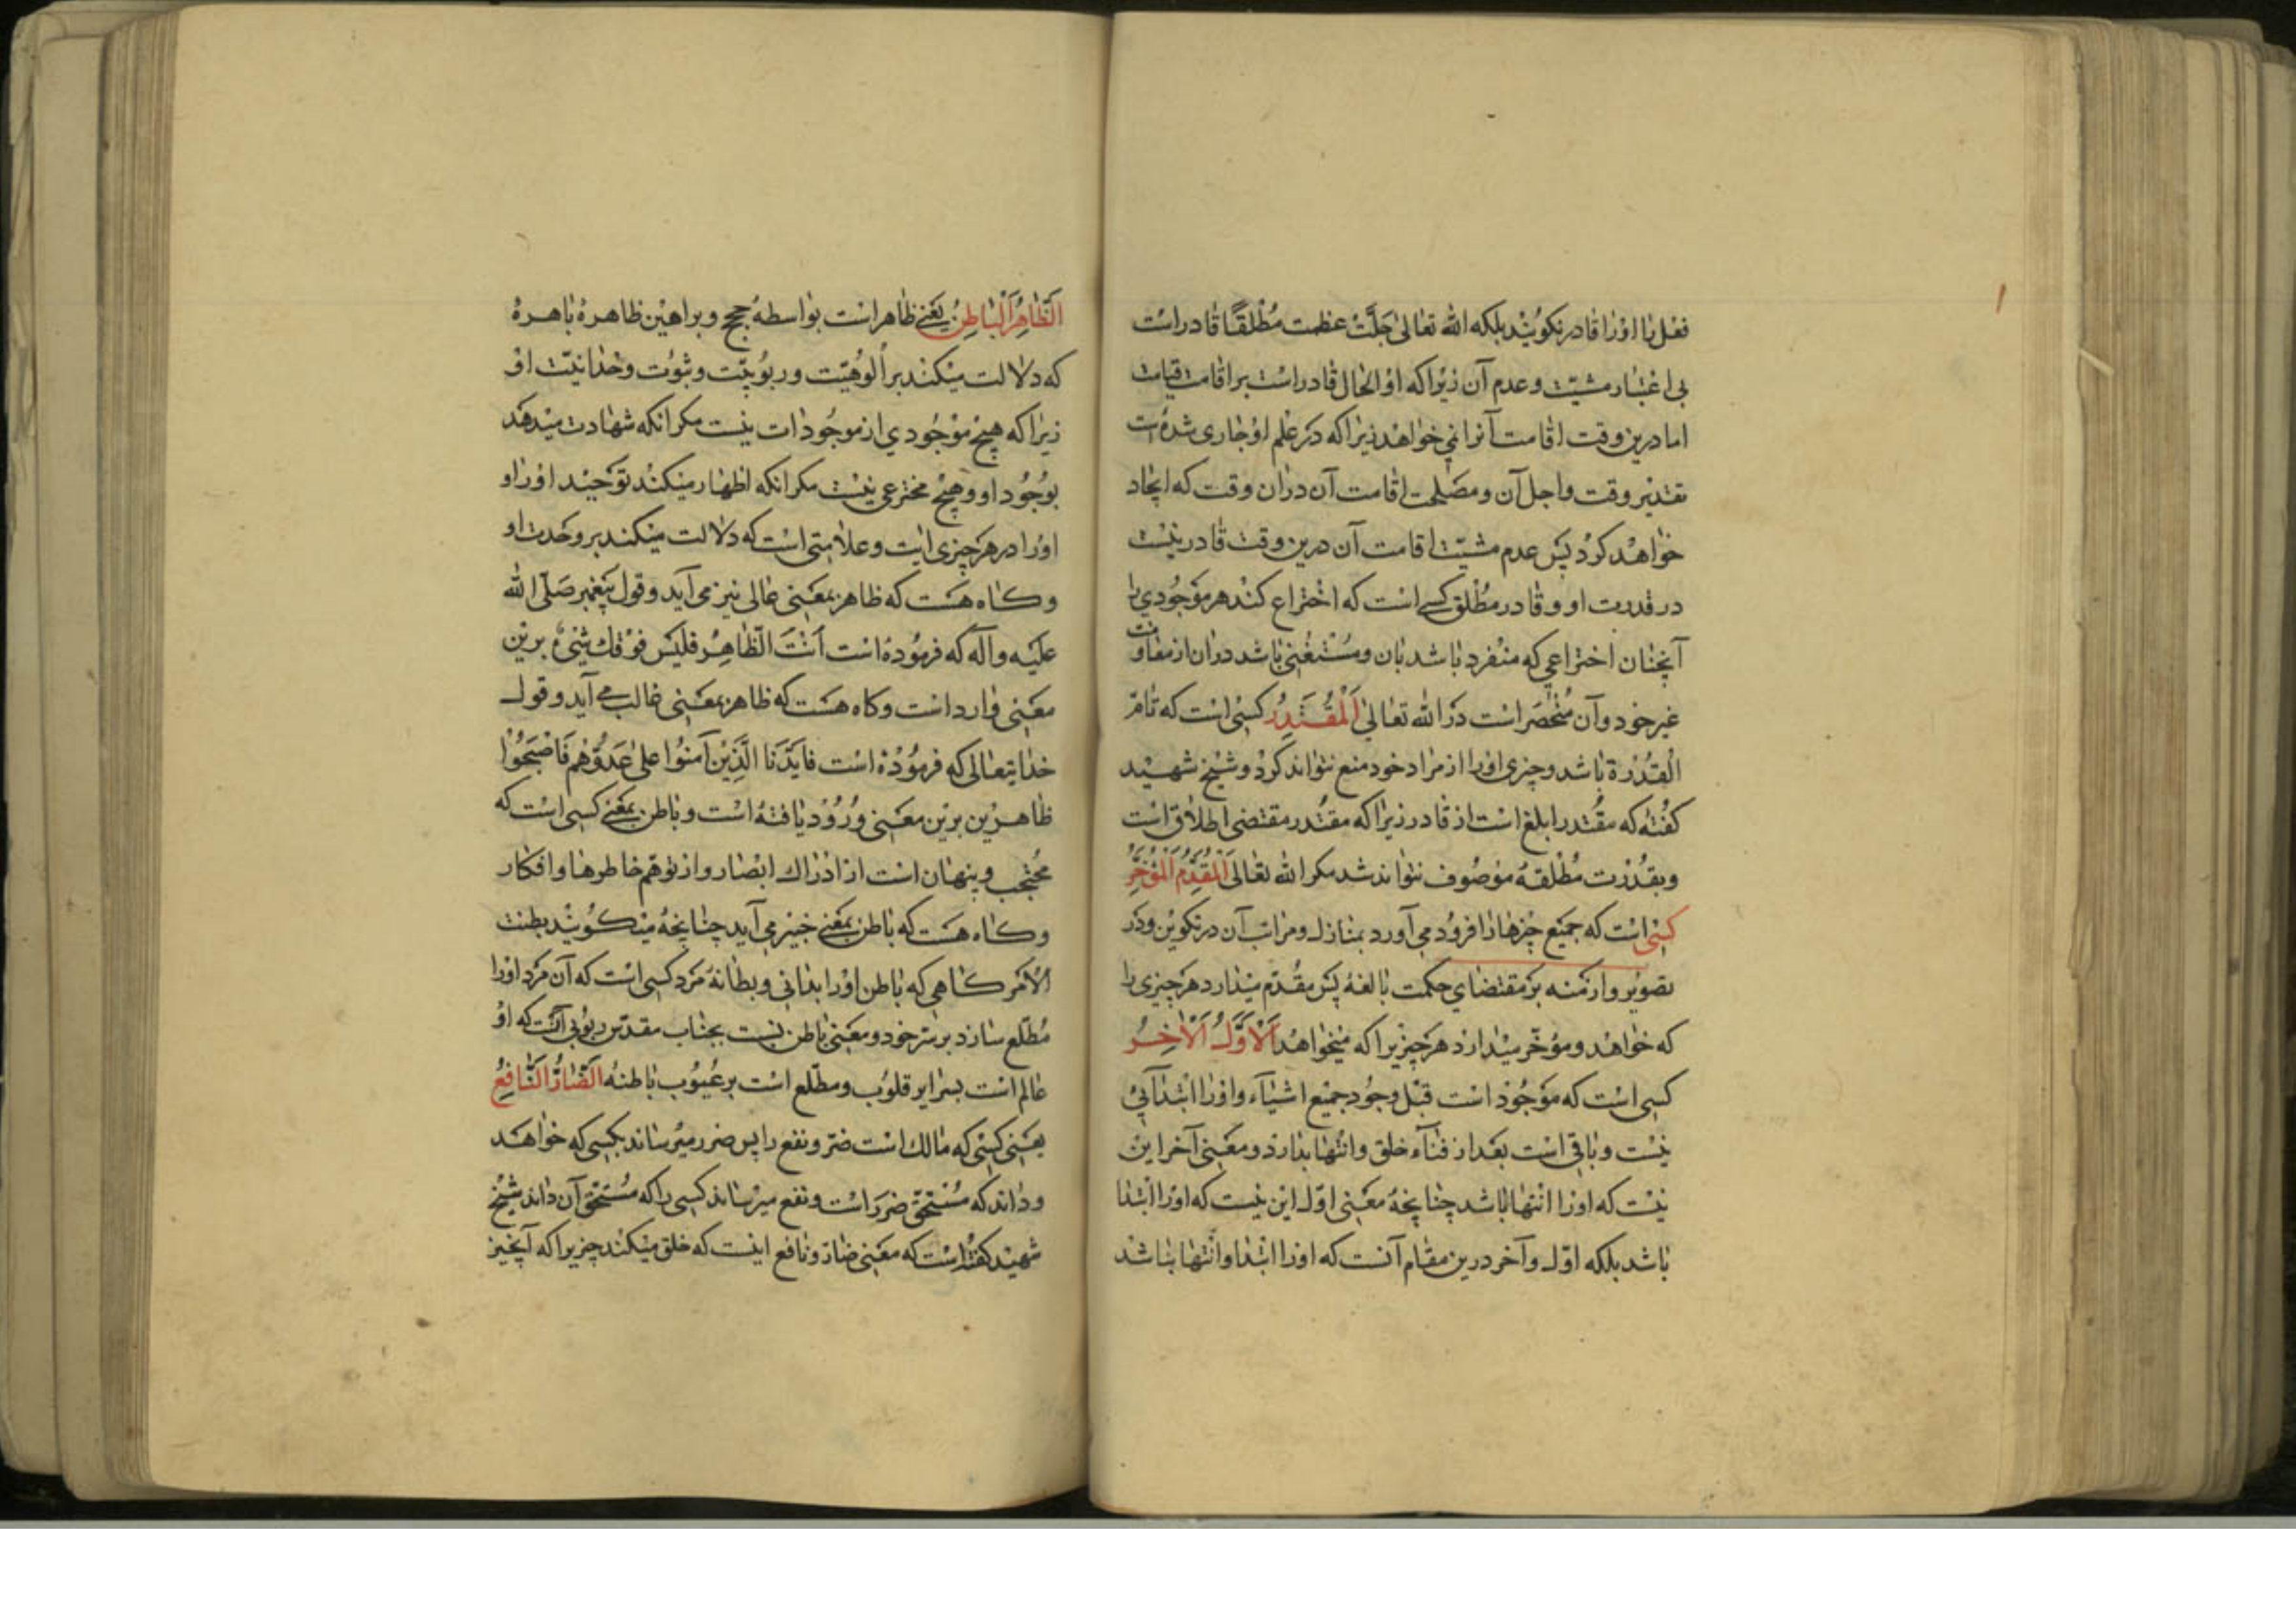 فعل را اورا قادر نکویند بلکه الله تعالی جلّت عظمت مطلقًا قادر است
بی اعتبار مشیّت و عدم آن زیرا که او الحال قادر است بر اقامت قیامت
اما درین وقت اقامت آنرا نمی خواهد زیرا که در علم او جاری شده است
تقدیر وقت و اجل آن و مصلحت اقامت آن دران وقت که ایجاد
خواهد کرد پس عدم مشیّت اقامت آن درین وقت قادر نیست
در قدرت او و قادر مطلق کسی است که اختراع کند هر موجودی را
آنچنان اختراعی که منفرد باشد بان و مستغنی باشد دران از معاونت
غیر خود و آن منحصر است در الله تعالی اَلْمُقْتَدِرُ کسی است که تامّ
القدرة باشد و چیزی اورا از مراد خود منع نتواند کرد و شیخ شهید
کفته که مقتدر ابلغ است از قادر زیرا که مقتدر مقتضی اطلاق است
و بقدرت مطلقه موصوف نتواند شد مکر الله تعالی اَلْمُقَدِّمُ اَلْمُؤَخِّرُ
کسی است که جمیع چیزها را فرود می آورد بمنازل و مراتب آن در تکوین و در
تصویر و ازمنه بر مقتضای حکمت بالغه پس مقدّم میدارد هر چیزی را
که خواهد و مؤخّر میدارد هر چیزیرا که میخواهد اَلْاَوَّلُ اَلْاٰخِرُ
کسی است که موجود است قبل وجود جمیع اشیاء و اورا ابتدائی
نیست و باقی است بعد از فناء خلق و انتها ندارد و معنی آخر این
نیست که اورا انتها باشد چنانچه معنی اوّل این نیست که اورا ابتدا
باشد بلکه اوّل و آخر درین مقام آنست که اورا ابتدا و انتها نباشد
اَلظّاهِرُ اَلْبَاطِنُ یعنی ظاهر است بواسطه حجج و براهین ظاهره باهره
که دلالت میکند بر الوهیّت و ربوبیّت و ثبوت وحدانیّت او
زیرا که هیچ موجودی از موجودات نیست مکر انکه شهادت میدهد
بوجود او و هیچ مخترعی نیست مکر انکه اظهار میکند توحید اورا و
اورا در هر چیزی ایت و علامتی است که دلالت میکند بر وحدت او
و کاه هست که ظاهر بمعنی عالی نیز می آید و قول پیغمبر صلّی الله
علیه و آله که فرموده است أنت الظاهر فلیس فوقك شیء برین
معنی وارد است و کاه هست که ظاهر بمعنی غالب می آید و قول
خدایتعالی که فرموده است فایّدنا الّذین آمنوا علی عدوّهم فاصبحوا
ظاهرین برین معنی ورود یافته است و باطن بمعنی کسی است که
محتجب و پنهان است از ادراك ابصار و از توهّم خاطرها و افکار
و کاه هست که باطن بمعنی خبیر می آید چنانچه میکویند بطنت
الامر کاهی که باطن اورا بدانی و بطانهٔ مرد کسی است که آن مرد اورا
مطّلع سازد بر سرّ خود و معنی باطن نسبت بجناب مقدّس ربوبی آنست که او
عالم است بسرایر قلوب و مطّلع است بر عیوب باطنه اَلضّارُّ النّافِعُ
یعنی کسی که مالك است ضرّ و نفع را پس ضرر میرساند بکسی که خواهد
و داند که مستحق ضرر است و نفع میرساند کسی را که مستحق آن داند شیخ
شهید کفته است که معنی ضارّ و نافع اینست که خلق میکند چیزیرا که آنچیز